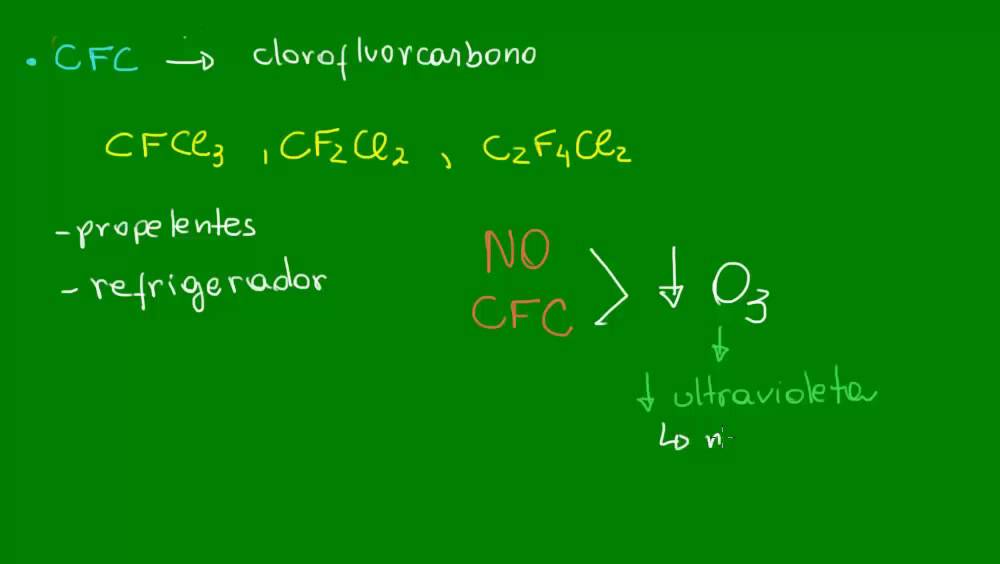 • CFC → clorofluorcarbono
CFCl3 , CF2Cl2 , C2F4Cl2
- propelentes
- refrigerador
NO
CFC > ↓ O3
↓
↓ ultravioleta
↳